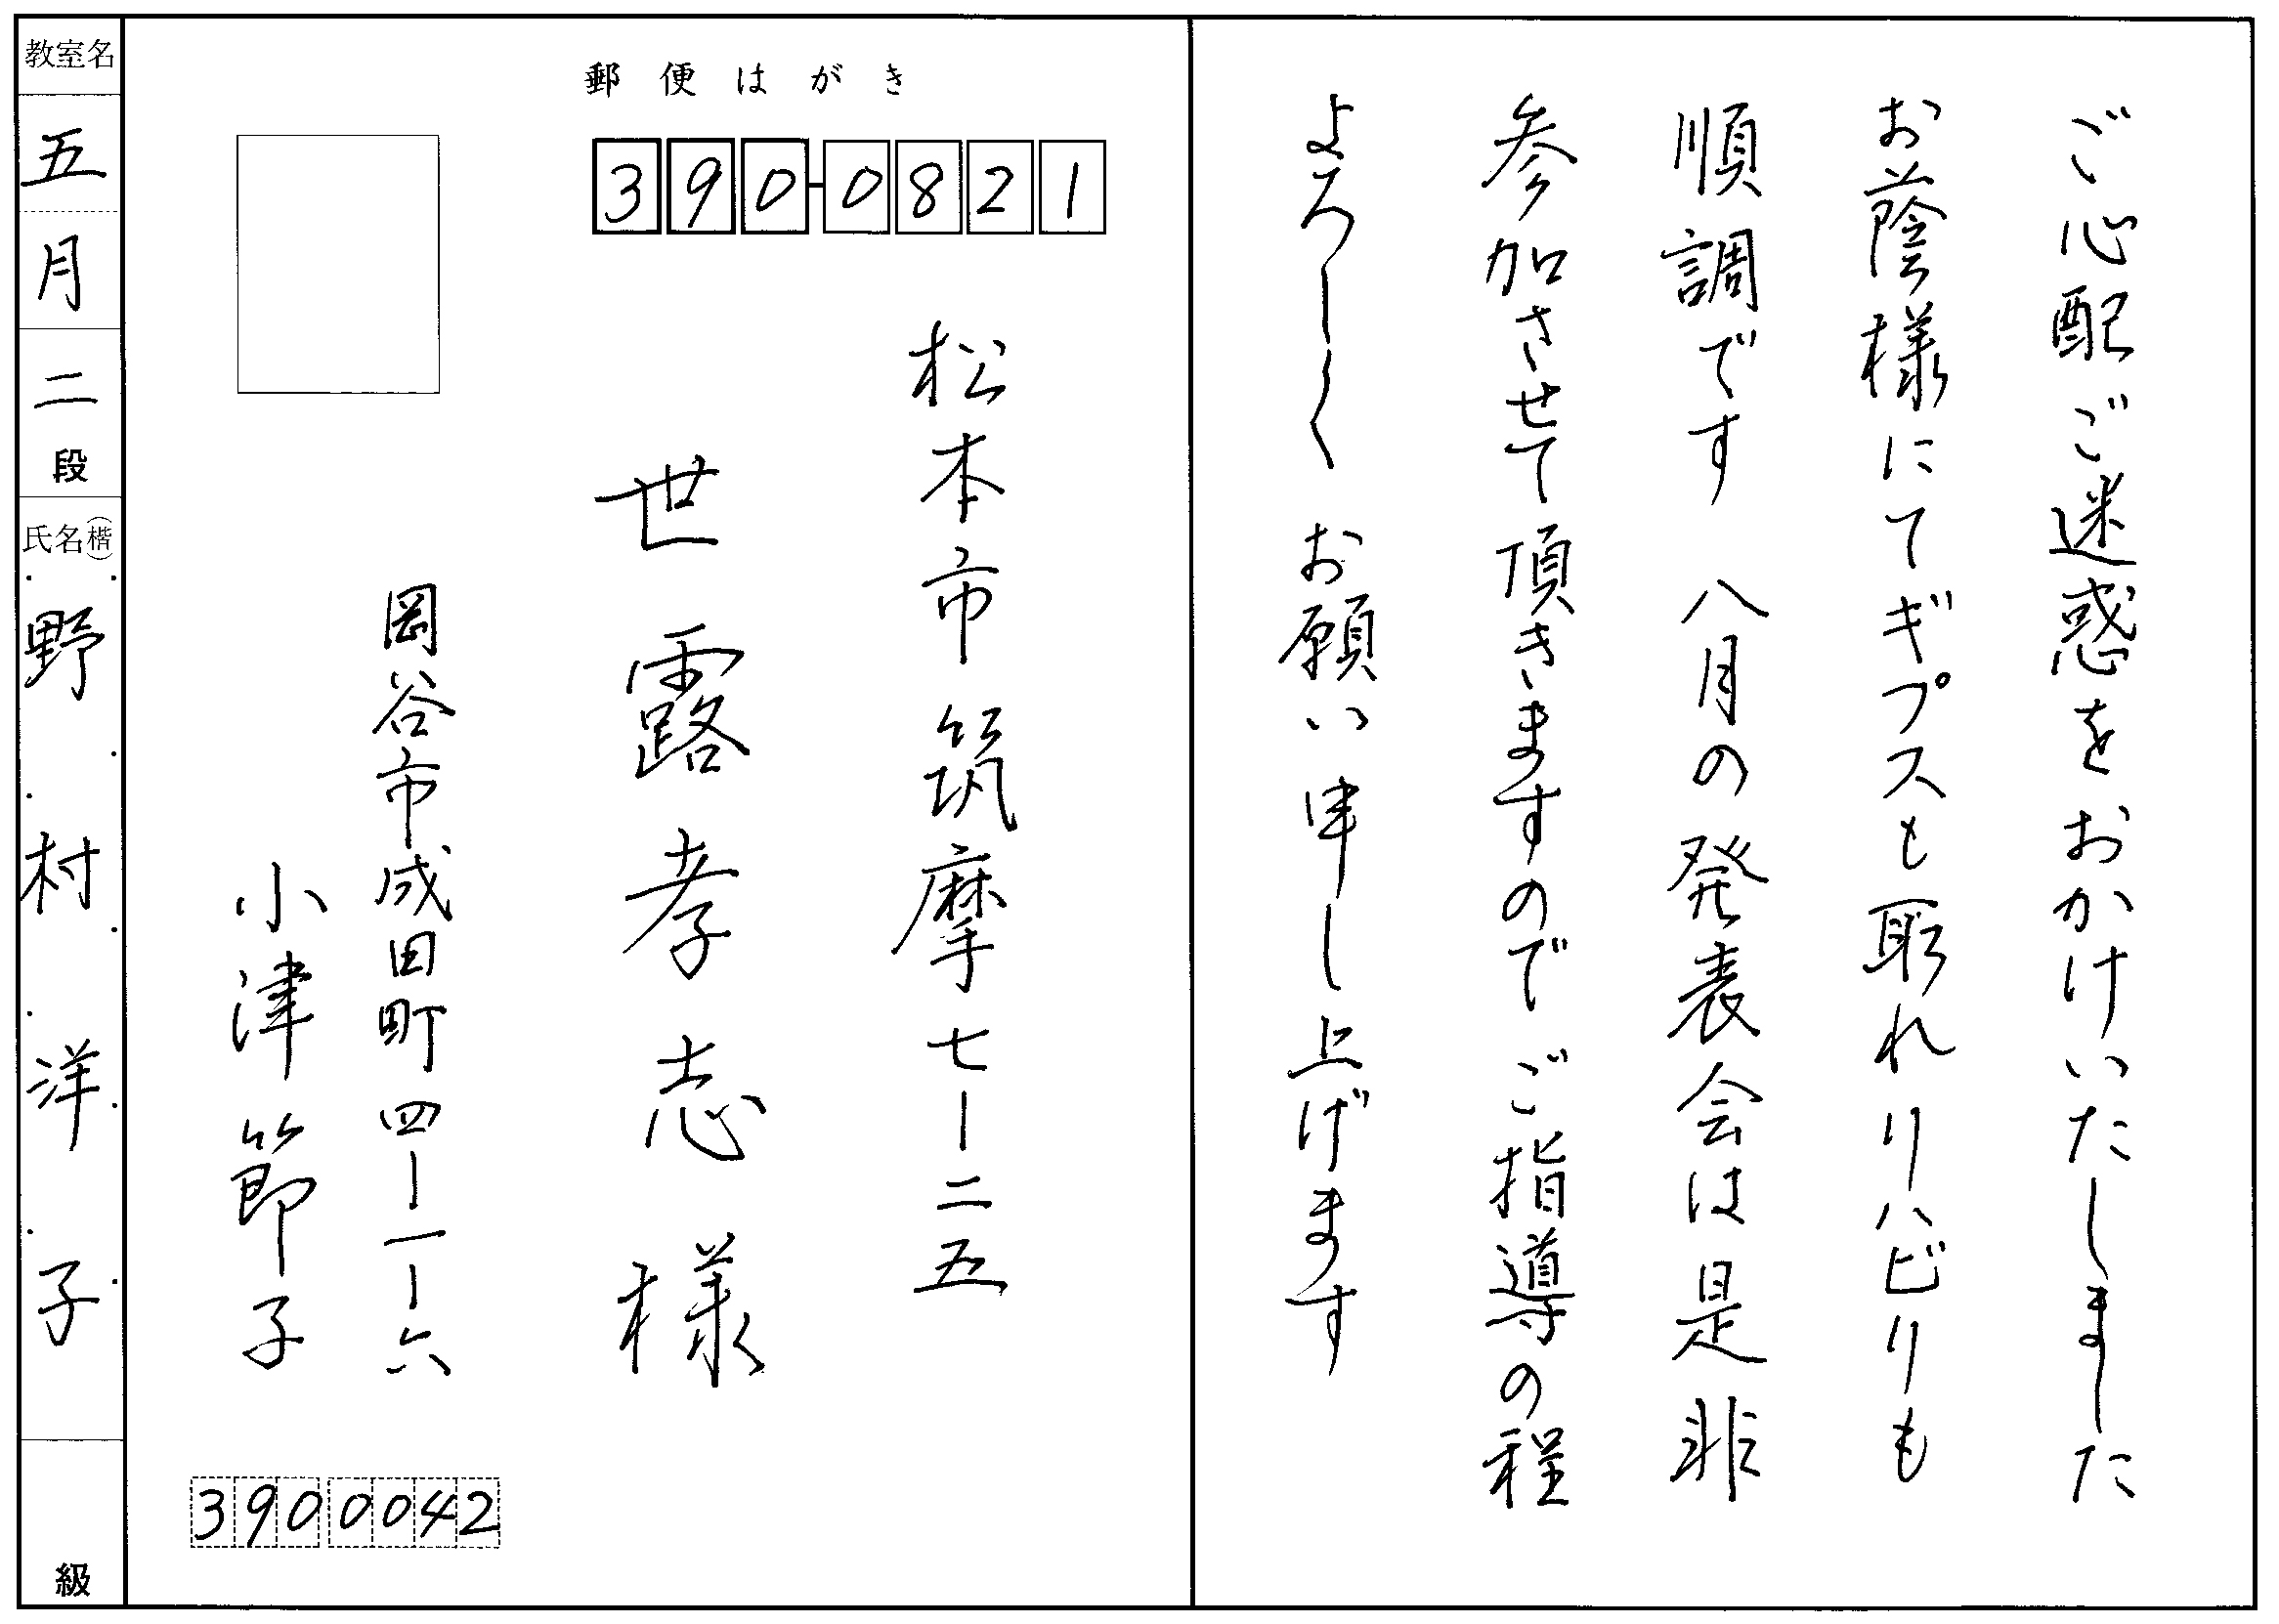 ご心配ご迷惑をおかけいたしました
お蔭様にてギプスも取れリハビリも
順調です 八月の発表会は是非
参加させて頂きますのでご指導の程
よろしく お願い申し上げます
郵便はがき
390-0821
松本市筑摩七-二五
世露孝志様
岡谷市成田町四-一-六
小津節子
3900042
教室名
五月
二段
氏名(楷)
野村洋子
級